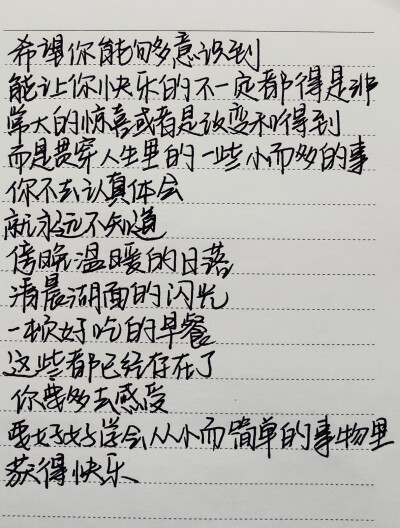 希望你能够多意识到
能让你快乐的不一定都得是非
常大的惊喜或者是改变和得到
而是贯穿人生里的一些小而多的事
你不去认真体会
就永远不知道
傍晚温暖的日落
清晨湖面的闪光
一顿好吃的早餐
这些都已经存在了
你要多去感受
要好好学会从小而简单的事物里
获得快乐